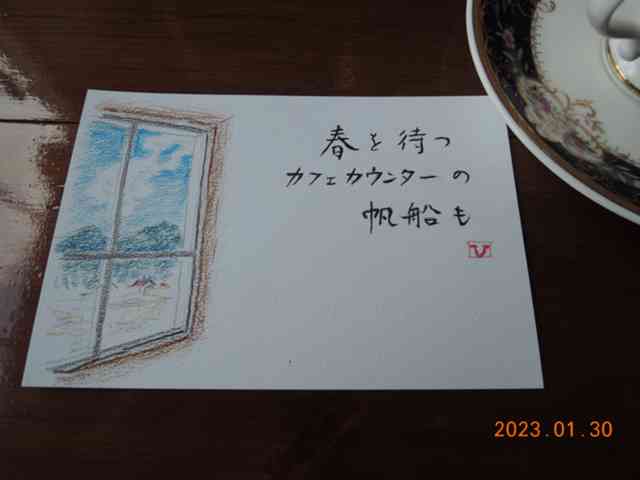 春を待つ
カフェカウンターの
帆船も
2023.01.30